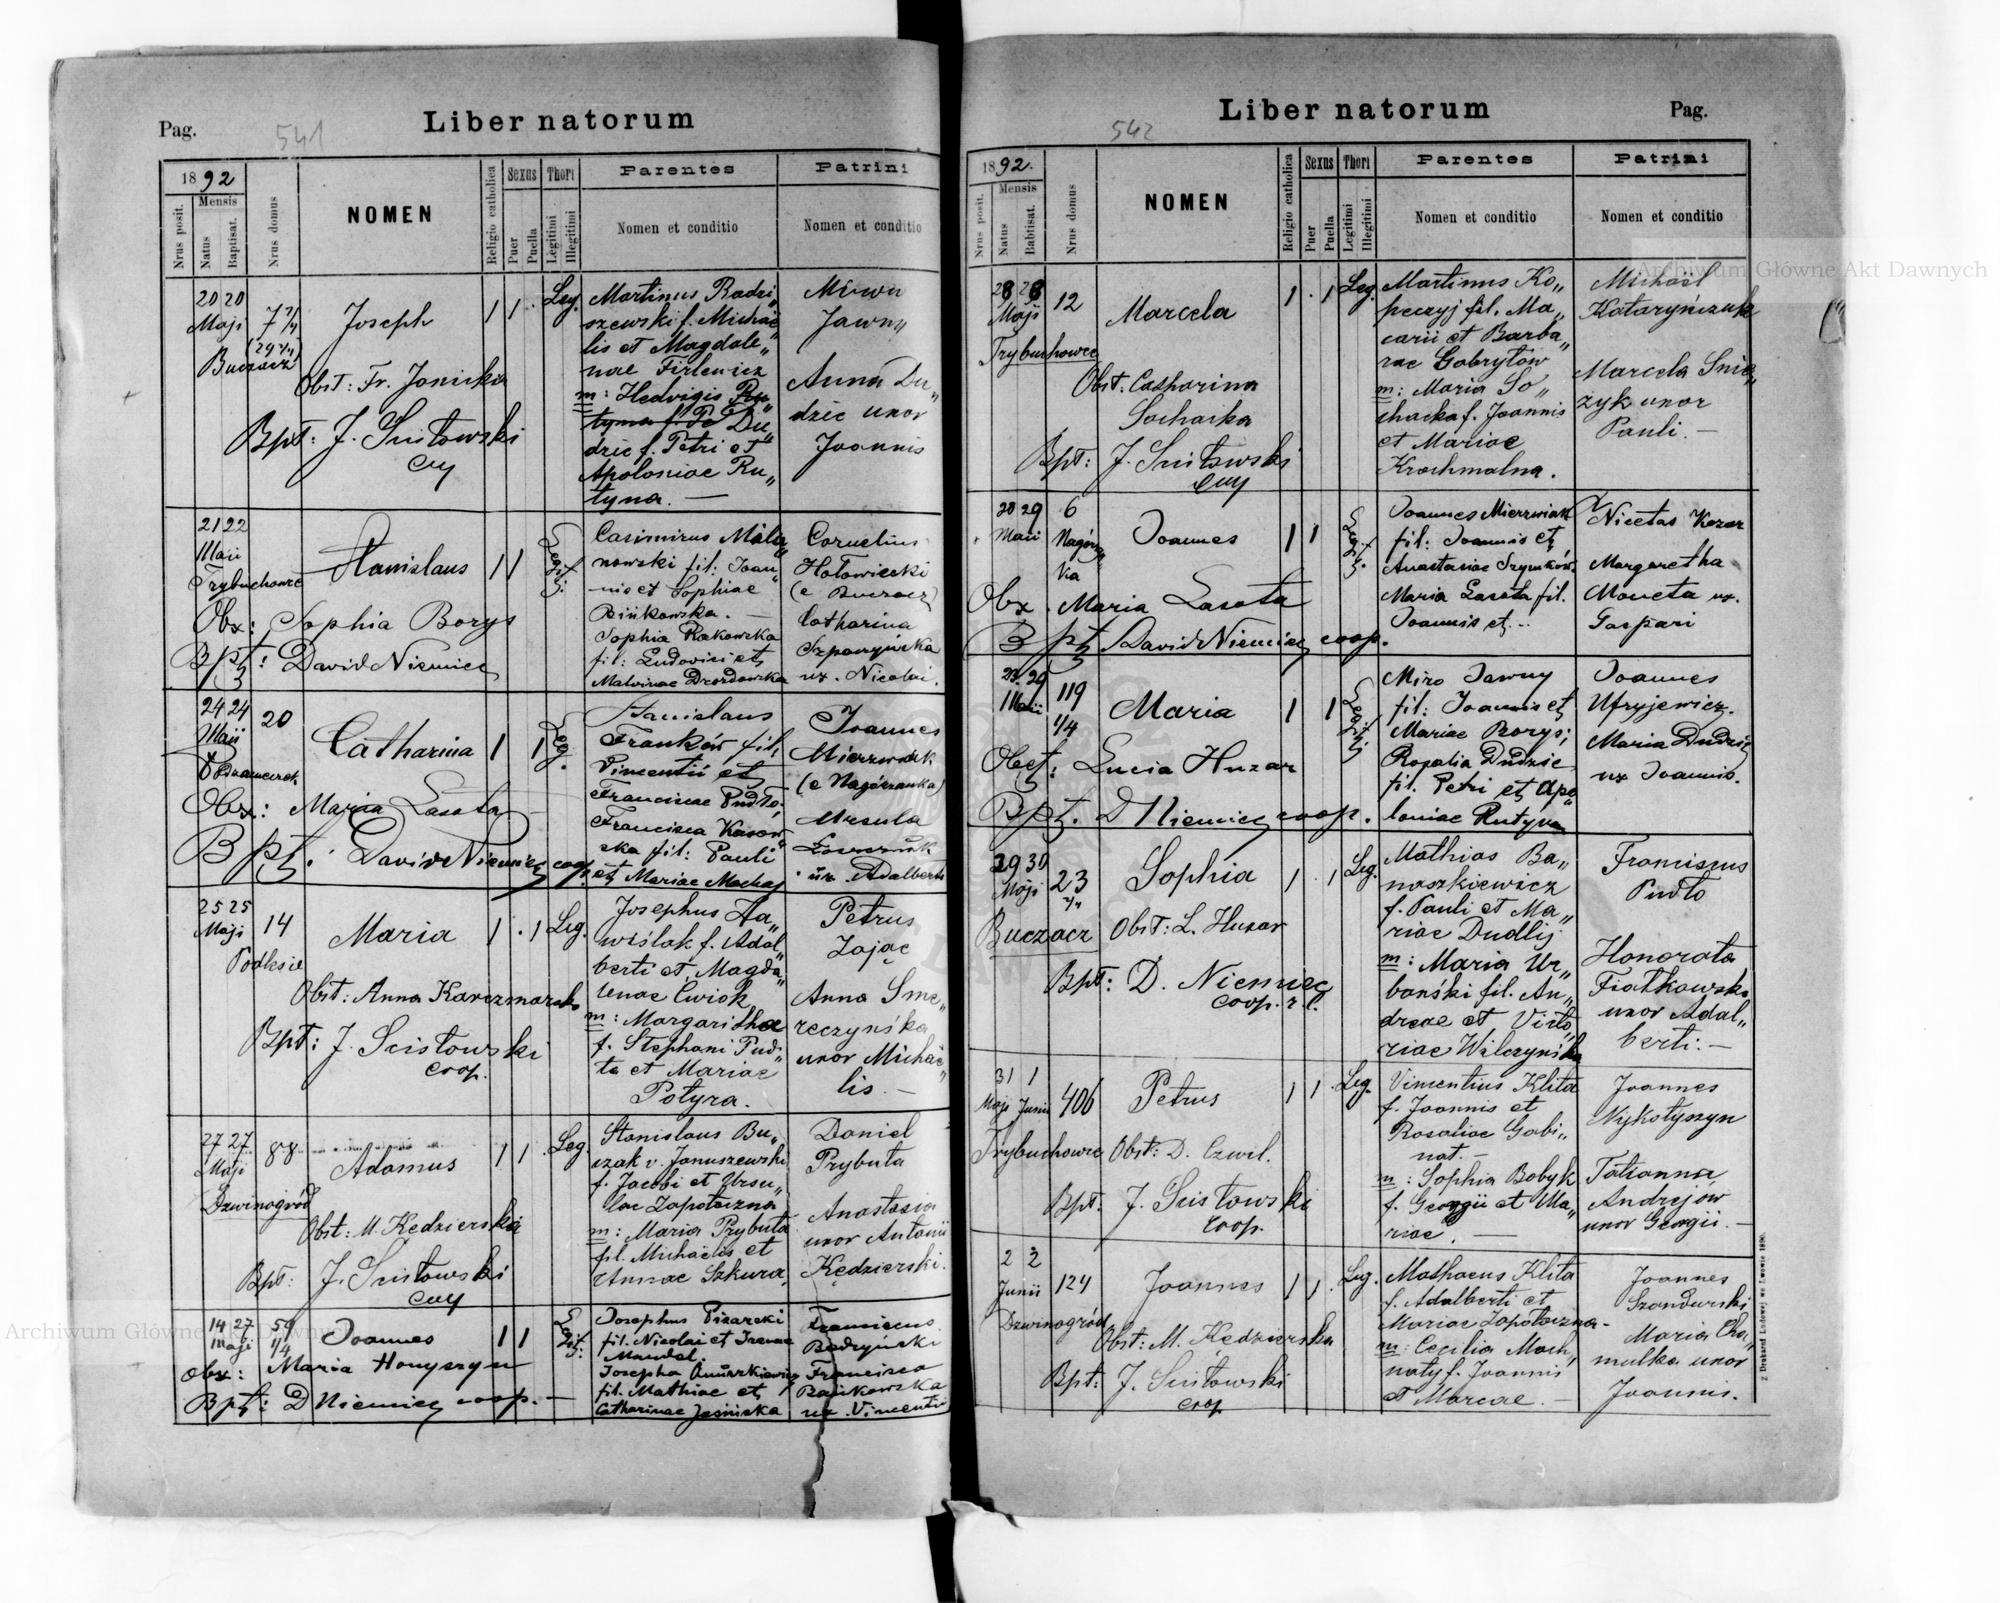 Pag.
541
Liber natorum
1892
Nrus posit.
Mensis
Natus
Baptisat.
Nrus domus
NOMEN
Religio catholica
Sexus
Puer
Puella
Thori
Legitimi
Illegitimi
Parentes
Nomen et conditio
Patrini
Nomen et conditio
20 20
Maji
7 1/4
Buczacz
Joseph
1 1
Leg.
Obst: Fr. Janicka
Bpt: J. Scisłowski
Martinus Radzi„
szewski f. Michae„
lis et Magdale„
nae Firlewicz
m: Hedvigis Ru„
tyna f. Pe Du„
dzic f. Petri et
Apoloniae Ru„
tyna. —
Jawny
Anna Du„
dzic uxor
Joannis
21 22
Maii
Trybuchowce
Stanislaus
1 1
Legit:
Obx: Sophia Borys
Bpt: David Niemiec
Casimirus Mala„
nowski fil: Joan„
nis et Sophiae
Bińkowska. —
Sophia Rakowska
fil: Ludovici et
Malvinae Drozdowska
Cornelius
Hołowiecki
(e Buczacz)
Catharina
Szparzyńska
ux. Nicolai.
24 24
Maii
20
Podzameczek
Catharina
1 1
Leg.
Obx: Maria Lasota
Bpt: David Niemiec coop.
Stanislaus
Franków fil.
Vincentii et
Franciscae Pudło;
Francisca Kasow„
ska fil: Pauli
et Mariae Machaj
Joannes
Mierzwiak
(e Nagórzanka)
Ursula
ux. Adalberti
25 25
Maji
14
Podlesie
Maria
1 . 1
Leg.
Obst: Anna Karczmarska
Bpt: J. Scisłowski
coop.
Josephus Ła„
wiślak f. Adal„
berti et Magda„
lenae Cwiok
m: Margaritha
f. Stephani Pud„
ło et Mariae
Potyra.
Petrus
Zając
Anna Sme„
reczyńska
uxor Michae„
lis. —
27 27
Maji
88
Dzwinogród
Adamus
1 1
Leg.
Obst: M. Kędzierska
Bpt: J. Scisłowski
Stanislaus Bu„
czak v. Januszewski
f. Jacobi et Ursu„
lae Zapotoczna
m: Maria Prybuła
fil. Michaelis et
Annae Szkura.
Daniel
Prybuła
Anastasia
uxor Antonii
Kędzierski.
14 27
Maji
59
1/4
Joannes
1 1
Legit:
Obx: Maria Honyszyn
Bpt: D Niemiec coop. —
Josephus Pisarski
fil. Nicolai et Irenae
Mandel.
Josepha
fil. Mathiae et
Catharinae Jaśnicka
Franciscus
Budzyński
Francisca
Bańkowska
ux. Vincentii
542
Liber natorum
Pag.
1892.
Nrus posit.
Mensis
Natus
Babtisat.
Nrus domus
NOMEN
Religio catholica
Sexus
Puer
Puella
Thori
Legitimi
Illegitimi
Parentes
Nomen et conditio
Patrini
Nomen et conditio
28 28
Maji
12
Trybuchowce
Marcela
1 . 1
Leg.
Obst: Catharina
Sochacka
Bpt: J. Scisłowski
Martinus Ko„
peczyj fil. Ma„
carii et Barba„
rae Gabrylów
m: Maria So„
chacka f. Joannis
et Mariae
Krochmalna.
Michael
Kataryńczuk
Marcela Śnie„
żyk uxor
Pauli. —
28 29
Maii
6
Nagórzan
ka
Joannes
1 1
Legit:
Obx. Maria Lasota
Bpt David Niemiec coop.
Joannes Mierzwiak
fil: Joannis et
Anastasiae Szymków
Maria Lasota fil.
Joannis et...
Nicetas Kozar
Margaretha
Moneta ux.
Gaspari
29
Maii
119
1/4
Maria
1 1
Legit:
Obst: Lucia Huzar
Bpt. D Niemiec coop.
Miro Jawny
fil: Joannis et
Mariae Borys;
Rozalia Dudzic
fil. Petri et Apo„
loniae Rutyna
Joannes
Ufryjewicz.
Maria Dudzic
ux Joannis.
29 30
Maji
23
Buczacz
Sophia
1 . 1
Leg.
Obst: L. Huzar
Bpt: D. Niemiec
coop. r. l.
Mathias Ba„
naszkiewicz
f. Pauli et Ma„
riae Dudlij
m: Maria Ur„
bański fil. An„
dreae et Victo„
riae Wilczyńska
Franciscus
Pudło
Honorata
Fiałkowska
uxor Adal„
berti. —
31 1
Maji Junii
406
Trybuchowce
Petrus
1 1
Leg.
Obst: D. Czwil.
Bpt: J. Scisłowski
Coop.
Vincentius Klita
f. Joannis et
Rosaliae Gabi„
nat. —
m: Sophia Bobyk
f. Georgii et Ma„
riae. —
Joannes
Nykołyszyn
Tatianna
Andrejów
uxor Georgii. —
2 2
Junii
124
Dzwinogród
Joannes
1 1
Leg.
Obst: M. Kędzierska
Bpt: J. Scisłowski
coop
Mathaeus Klita
f. Adalberti et
Mariae Zapotoczna.
m: Cecilia Mach„
naty f. Joannis
et Marcae. —
Joannes
Szandurski
Maria Cha„
mulka uxor
Joannis.
Z Drukarni Ludowej we Lwowie 1890.
Archiwum Główne Akt Dawnych
Archiwum Główne Akt Dawnych